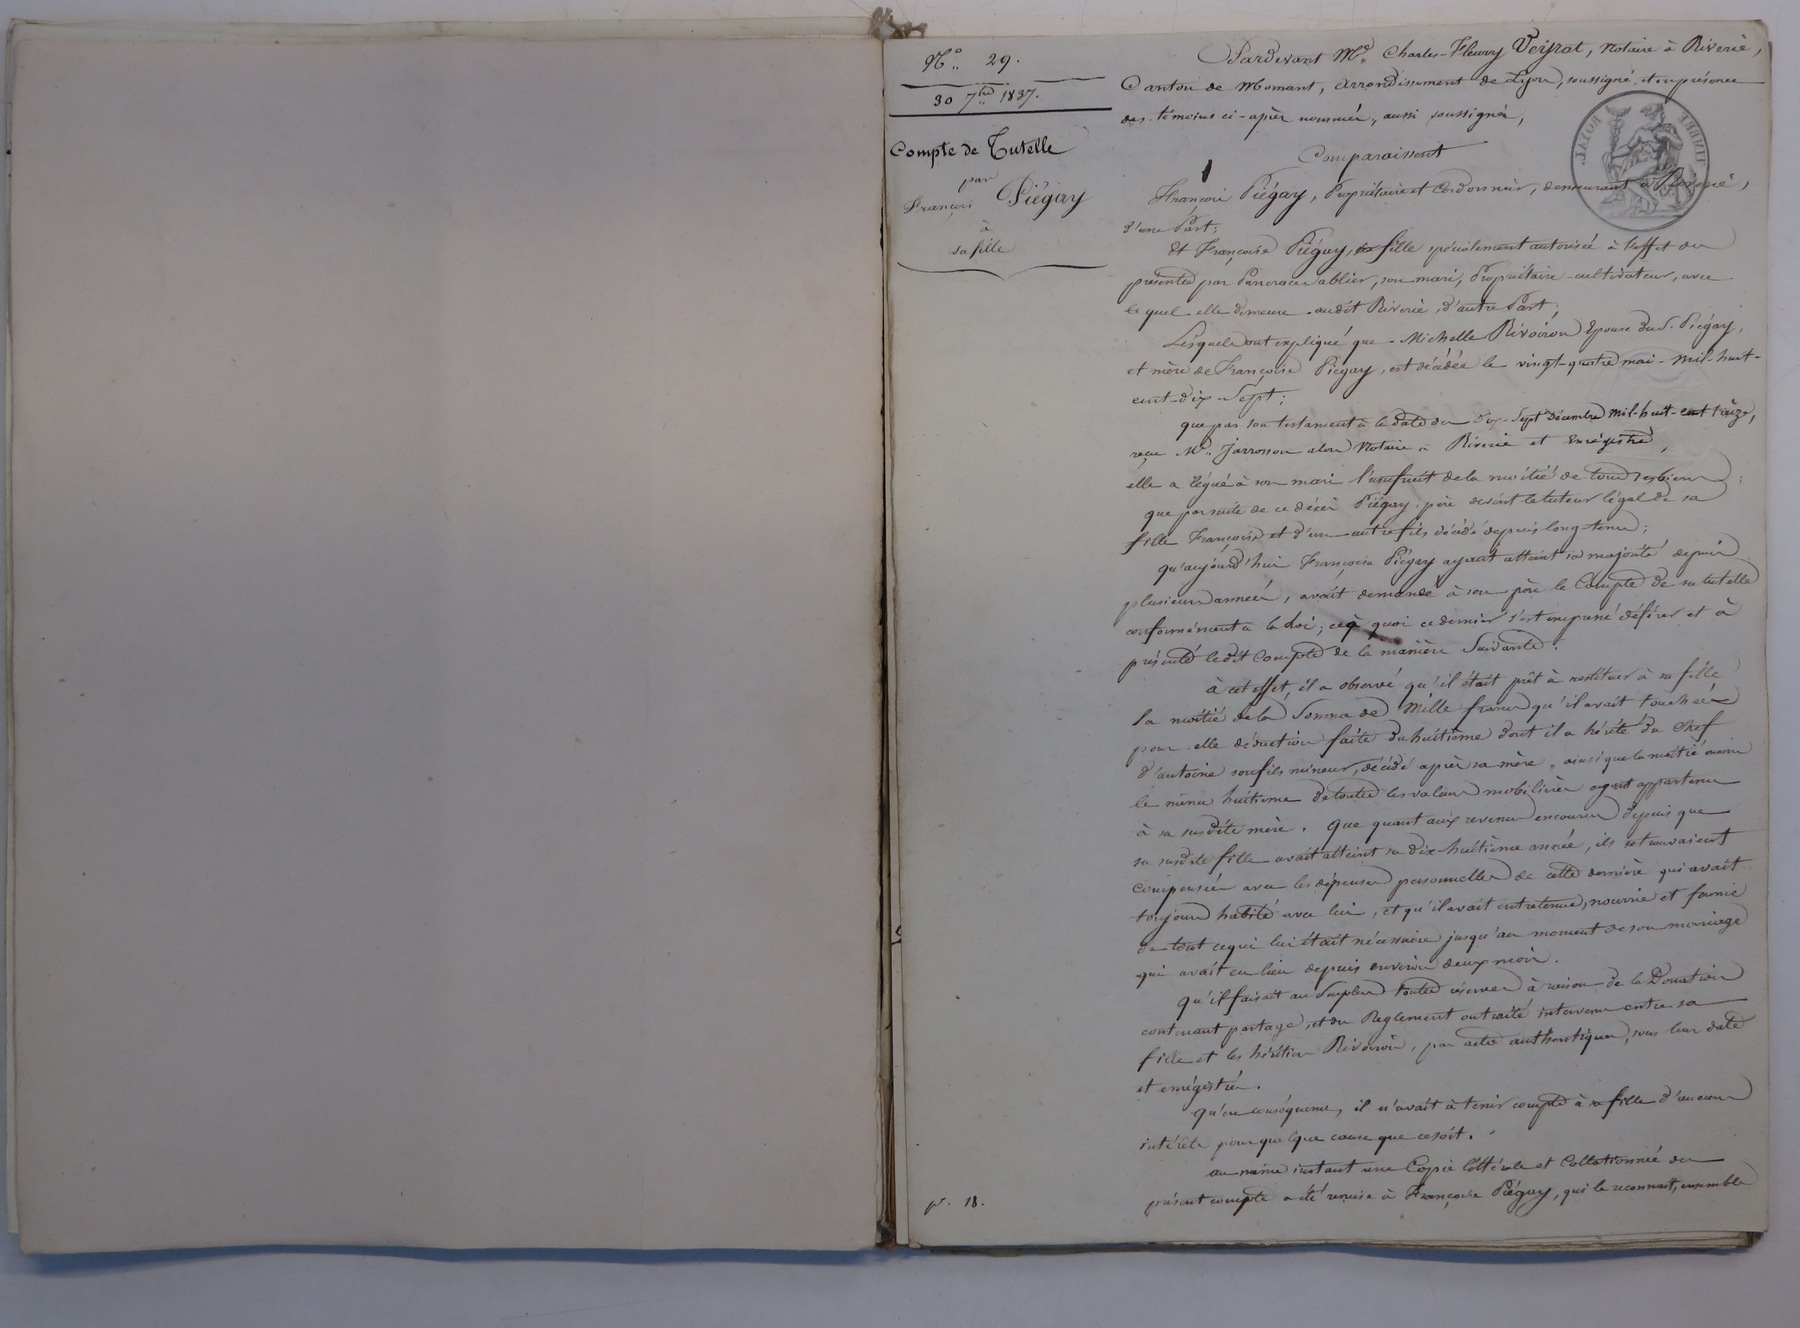 N.° 29.
30 7.bre 1837.
Compte de Tutelle
par
François Piégay
à
sa fille
Pardevant M.e Charles-Fleury Veyrat, Notaire à Riverie,
Canton de Mornant, arrondissement de Lyon, soussigné, et en présence
des témoins ci-après nommés, aussi soussignés,
TIMBRE ROYAL
Comparaissent
François Piégay, Propriétaire et Cordonnier, demeurant à Riverie,
d'une Part;
Et Françoise Piégay, sa fille spécialement autorisée à l'effet des
présentes par Pancrace Jablier, son mari, Propriétaire-cultivateur, avec
lequel elle demeure audit Riverie, d'autre Part;
Lesquels ont expliqué que Michelle Rivoiron Epouse du S. Piégay,
et mère de Françoise Piégay, est décédée le vingt-quatre mai-mil-huit-
cent-dix-sept;
que par son testament à la date du Dix-Sept Décembre mil-huit-cent treize,
reçu M.e Jarrosson alors Notaire à Riverie et Enregistré,
elle a légué à son mari l'usufruit de la moitié de tous ses biens;
que par suite de ce décès Piégay, père devint le tuteur légal de sa
fille Françoise et d'un autre fils décédé depuis long-tems;
qu'aujourd'hui Françoise Piégay ayant atteint sa majorité depuis
plusieurs années, avait demandé à son père le Compte de sa tutelle
conformément à la Loi; ce à quoi ce dernier s'est empressé déférer et à
présenté ledit Compte de la manière Suivante:
à cet effet, il a observé qu'il était prêt à restituer à sa fille
la moitié de la Somme de Mille francs qu'il avait touchée
pour elle déduction faite du huitième dont il a hérité du Chef
d'antoine son fils mineur, décédé après sa mère, ainsi que la moitié moins
le même huitième de toutes les valeurs mobilières ayant appartenu
à sa susdite mère. Que quant aux revenus encourus depuis que
sa susdite fille avait atteint sa dix-huitième année, ils se trouvaient
compensés avec les dépenses personnelles de cette dernière qui avait
toujours habité avec lui, et qu'il avait entretenue, nourrie et fournie
de tout ce qui lui était nécessaire jusqu'au moment de son mariage
qui avait eu lieu depuis environ deux mois.
Qu'il faisait au Surplus toutes réserves à raison de la Donation
contenant partage, et du Règlement ou traité intervenu entre sa
fille et les héritiers Rivoiron, par actes authentiques, sous leur date
et enregistrés.
Qu'en conséquence, il n'avait à tenir compte à sa fille d'aucuns
intérêts pour quelque cause que ce soit.
au même instant une Copie littérale et Collationnée du
présent compte a été remise à Françoise Piégay, qui le reconnait, ensemble
p. 18.